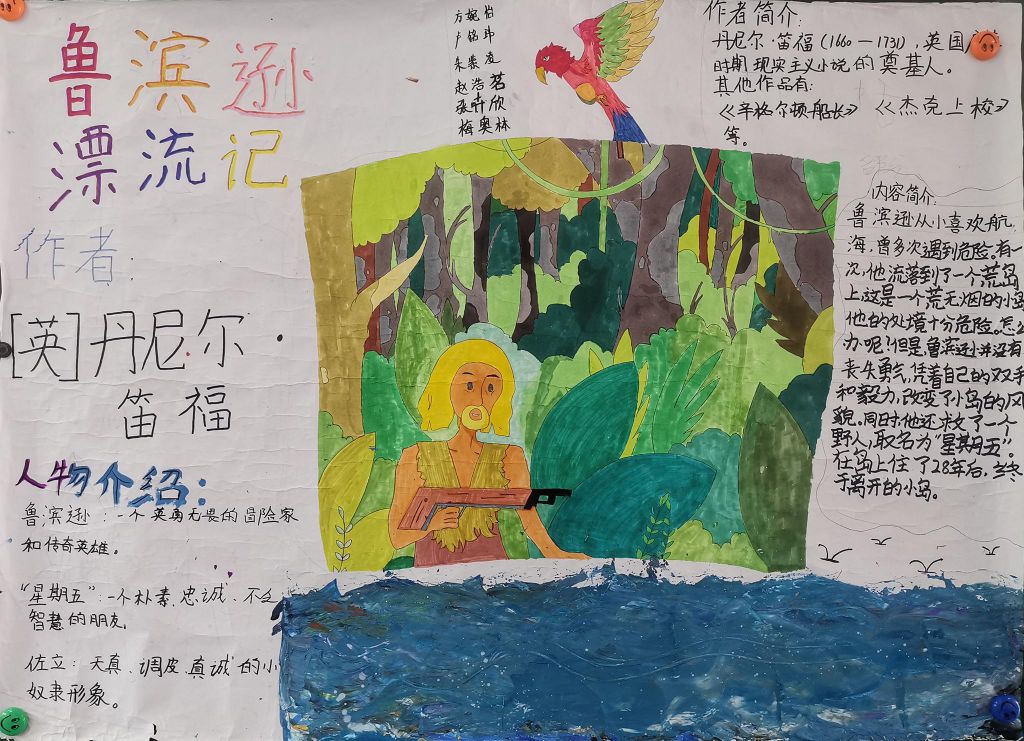 鲁滨逊
漂流记
作者:
[英]丹尼尔·
笛福
人物介绍:
鲁滨逊:一个英勇无畏的冒险家
和传奇英雄。
"星期五":一个朴素、忠诚、不乏
智慧的朋友。
佐立:天真、调皮、真诚的小
奴隶形象。
方婉怡
卢铭玮
朱熹凌
赵浩茗
张叶欣
梅奥林
作者简介:
丹尼尔·笛福(1660—1731),英国
时期现实主义小说的奠基人。
其他作品有:
《辛格尔顿船长》《杰克上校》
等。
内容简介:
鲁滨逊从小喜欢航
海,曾多次遇到危险。有一
次,他流落到了一个荒岛
上,这是一个荒无烟的小岛
他的处境十分危险。怎么
力.呢!但是,鲁滨逊并没有
丧失勇气,凭着自己的双手
和毅力,改变了小岛的风
貌。同时,他还求攵了一个
野人,取名为"星期五"。
在岛上住了28年后,终
于离开的小岛。